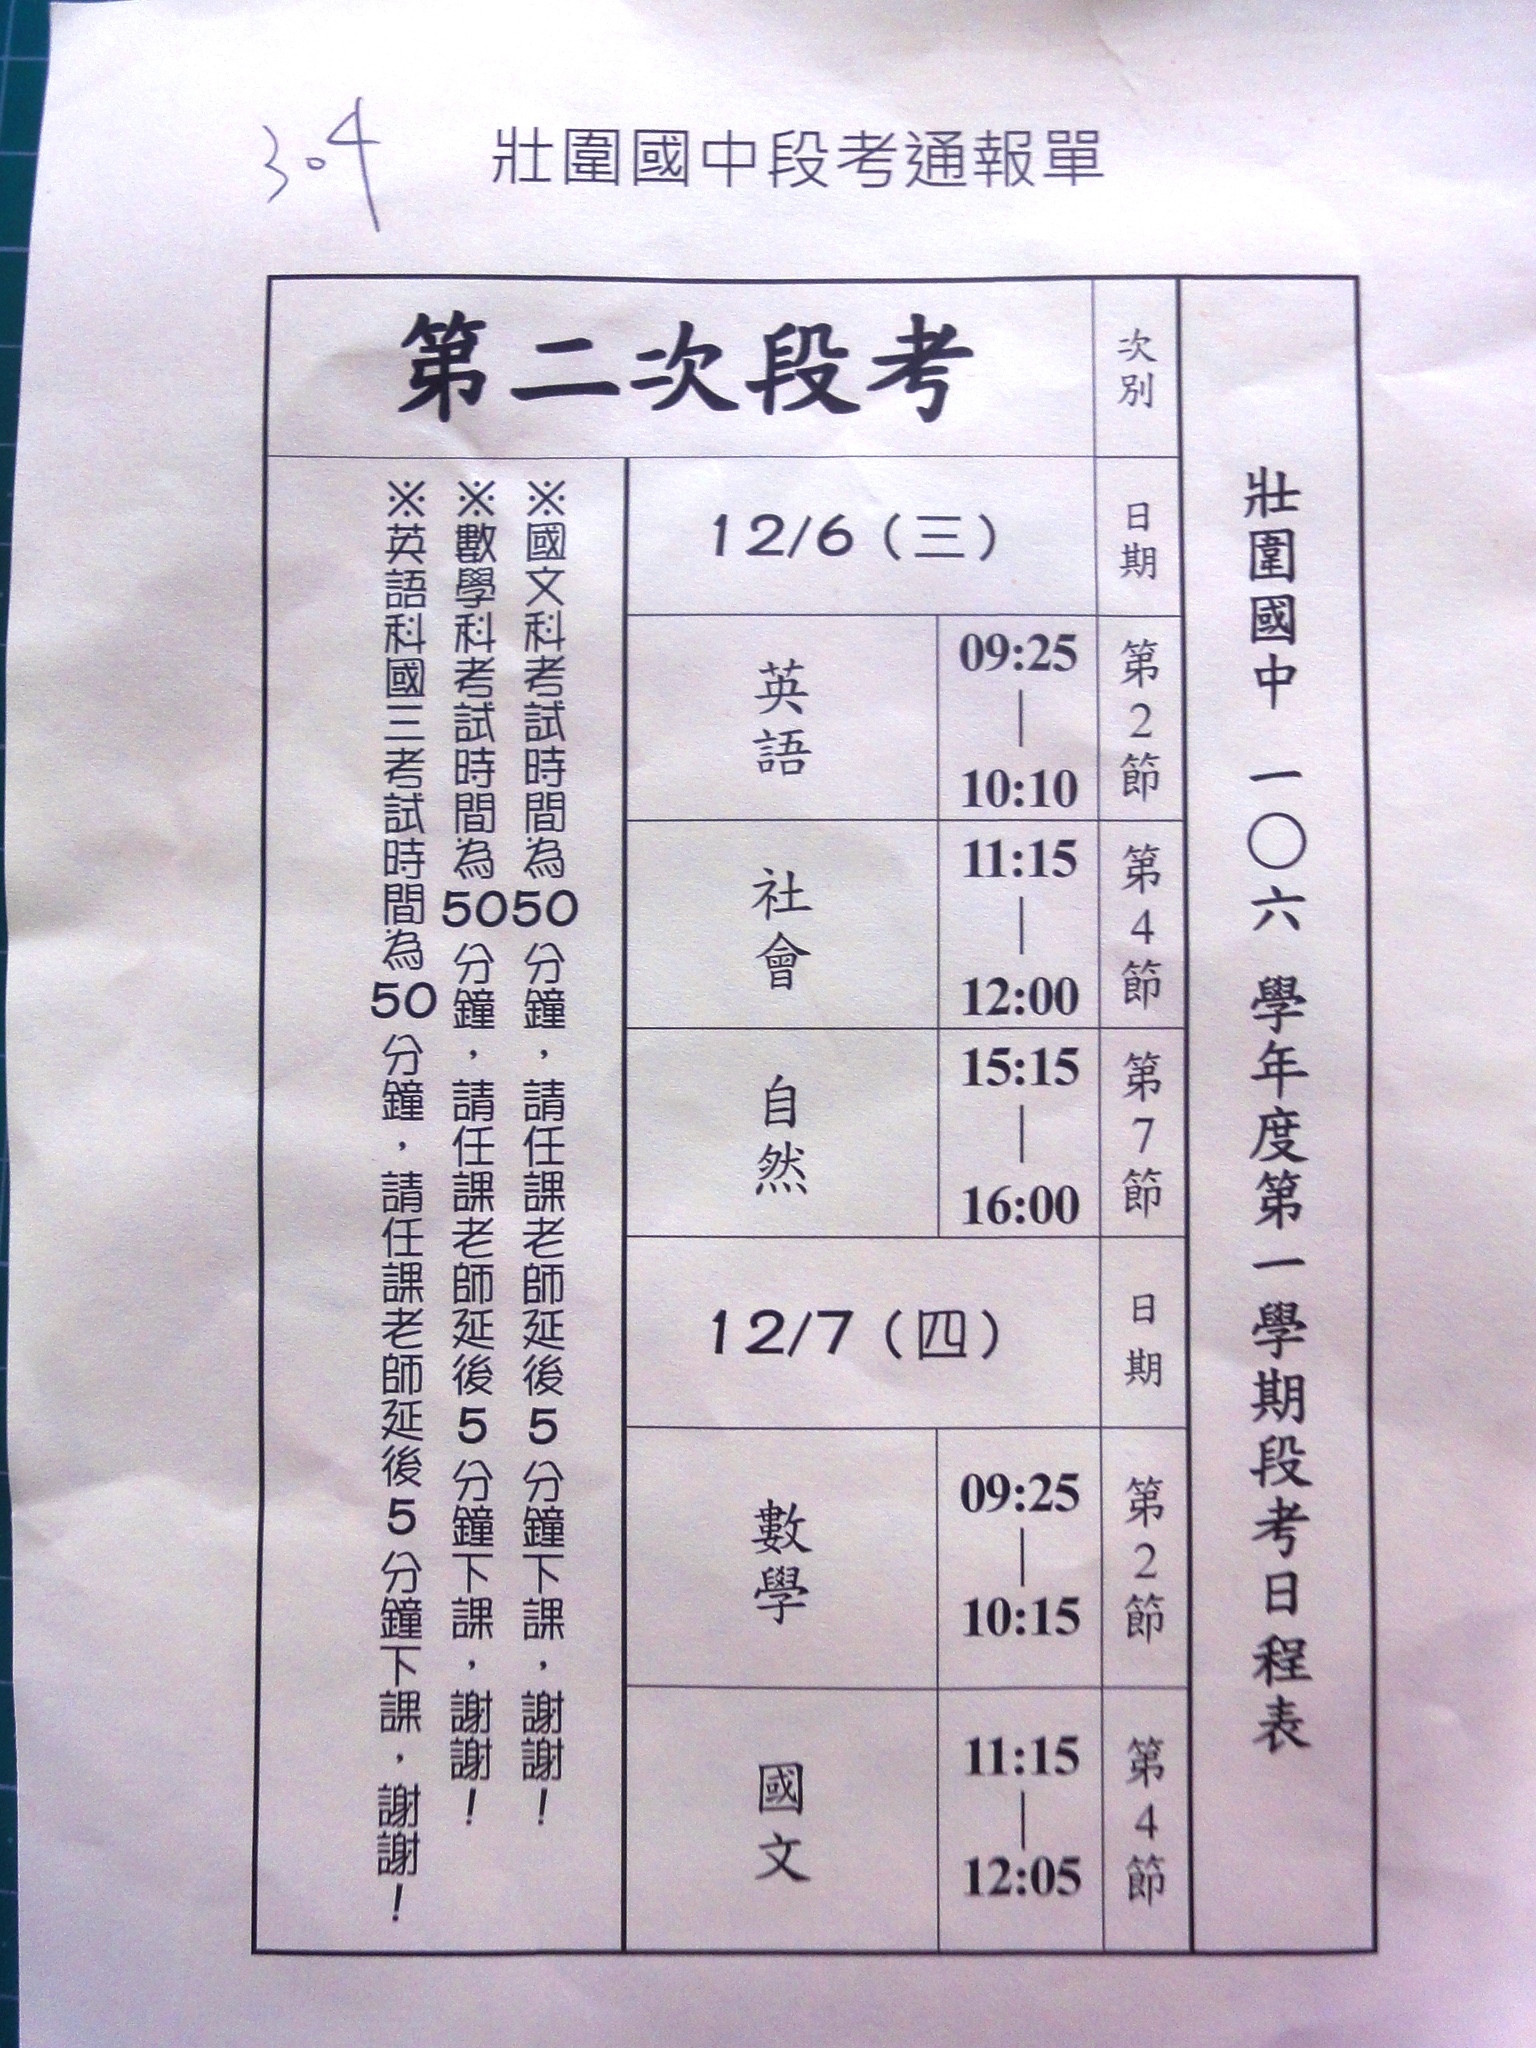 304
壯圍國中段考通報單
壯圍國中 一〇六 學年度第一學期段考日程表
次別
第二次段考
日期
12/6（三）
第2節
09:25
|
10:10
英語
第4節
11:15
|
12:00
社會
第7節
15:15
|
16:00
自然
日期
12/7（四）
第2節
09:25
|
10:15
數學
第4節
11:15
|
12:05
國文
※國文科考試時間為50分鐘，請任課老師延後5分鐘下課，謝謝！
※數學科考試時間為50分鐘，請任課老師延後5分鐘下課，謝謝！
※英語科國三考試時間為50分鐘，請任課老師延後5分鐘下課，謝謝！